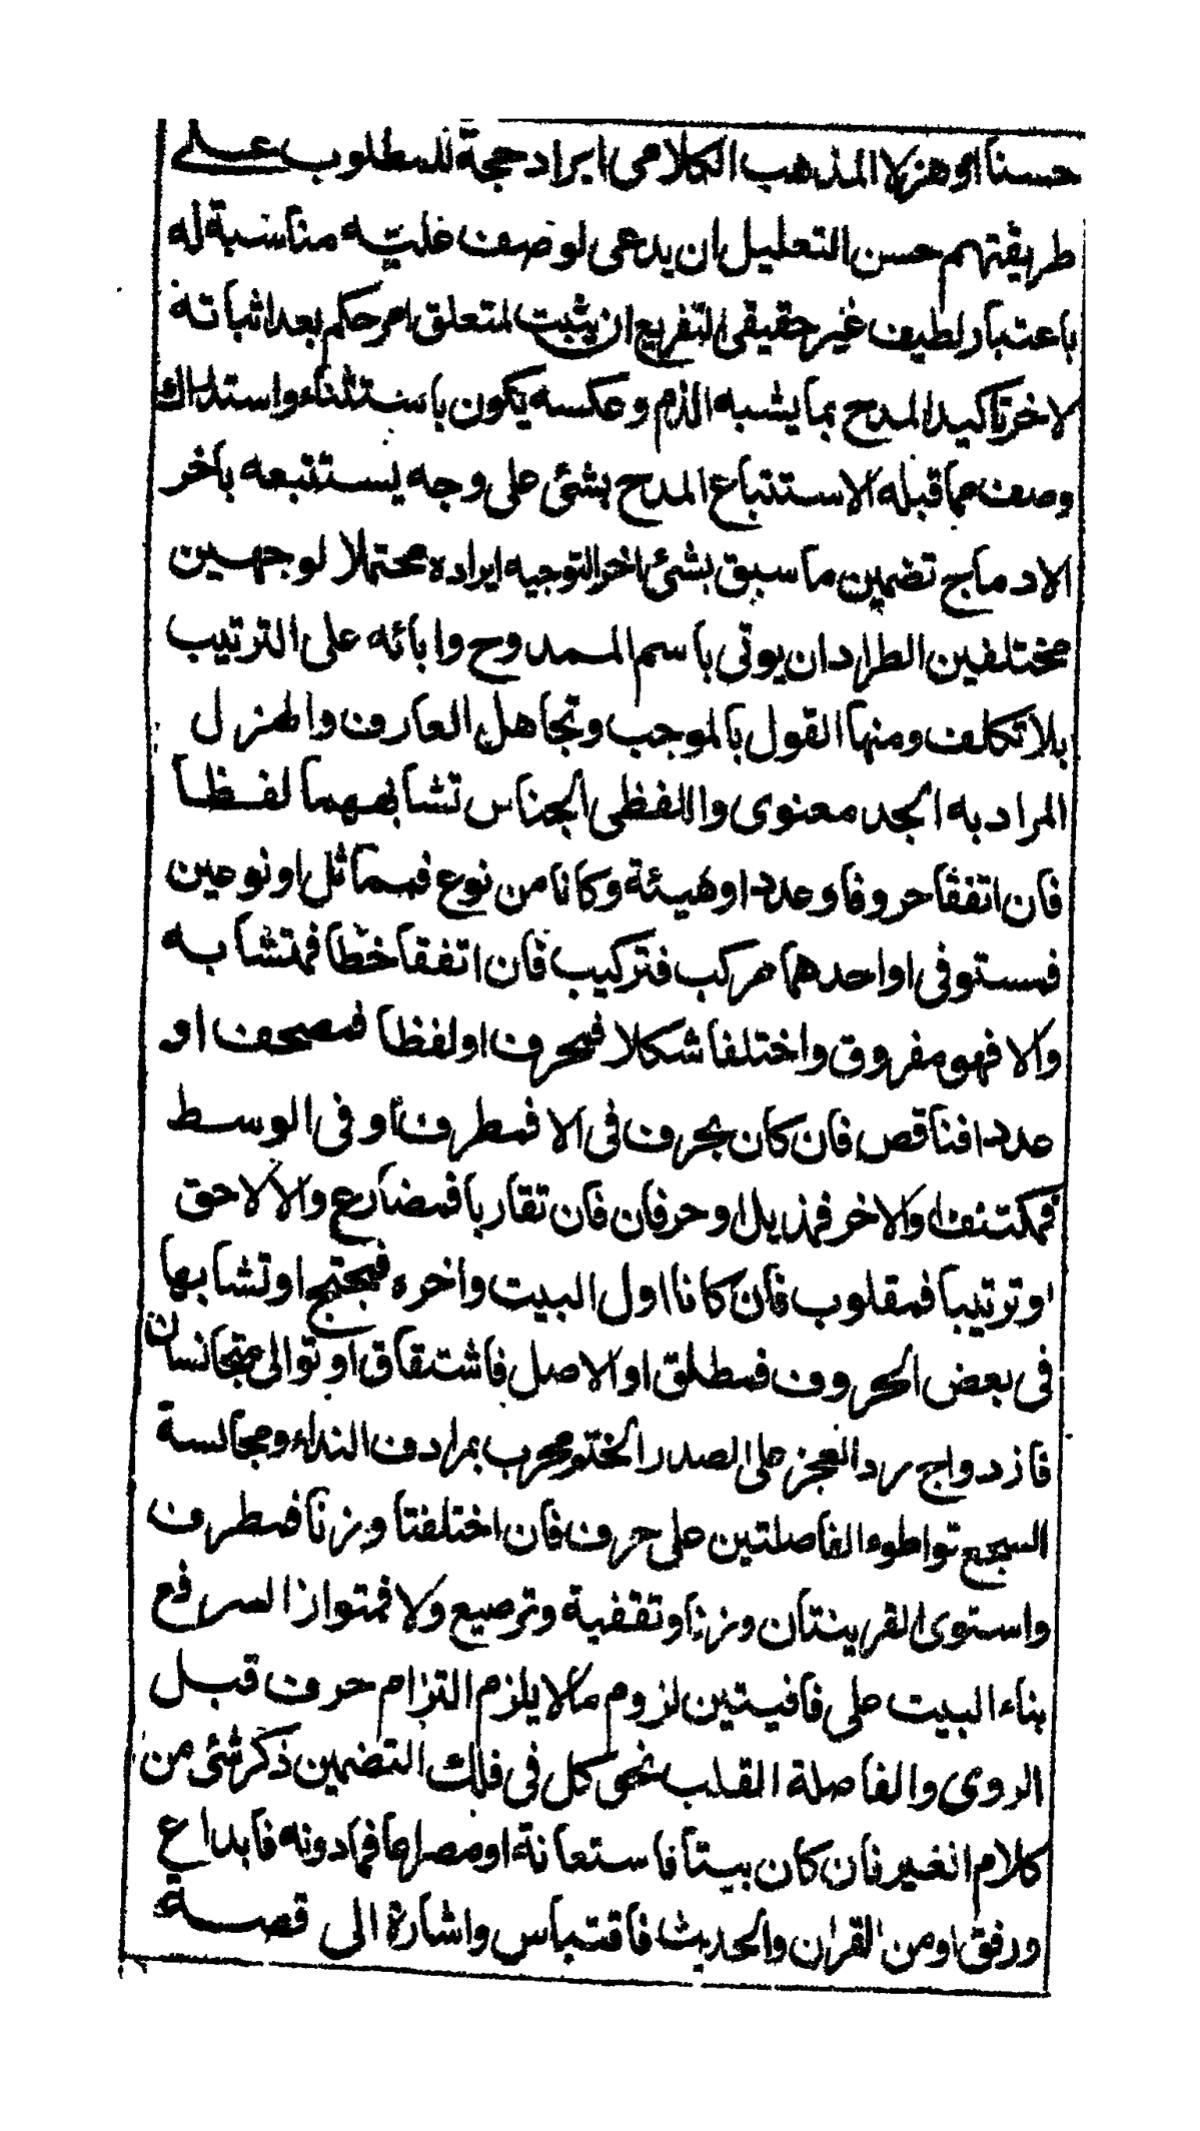 حسنا او هزلا المذهب الكلامى ايراد حجة للمطلوب على
طريقتهم حسن التعليل ان يدعى لوصف علية مناسبة له
باعتبار لطيف غير حقيقى التفريع ان يثبت لمتعلق امر حكم بعد اثباته
لاخر تاكيد المدح بما يشبه الذم وعكسه يكون باستثناء واستدراك
وصف مما قبله الاستتباع المدح بشئ على وجه يستتبعه باخر
الادماج تضمين ما سبق بشئ اخر التوجيه ايراده محتملا لوجهين
مختلفين الطراد ان يوتى باسم الممدوح وابائه على الترتيب
بلا تكلف ومنها القول بالموجب وتجاهل العارف والهزل
المراد به الجد معنوى واللفظى الجناس تشابههما لفظا
فان اتفقا حروفا وعددا وهيئة وكانا من نوع فمماثل او نوعين
فمستوفى او احدهما مركب فتركيب فان اتفقا خطا فمتشابه
والا فهو مفروق واختلفا شكلا فمحرف او لفظا فمصحف او
عددا فناقص فان كان بحرف فى الا فمطرف او فى الوسط
فمكتنف او الاخر فمذيل او حرفان فان تقاربا فمضارع والا لاحق
او ترتيبا فمقلوب فان كانا اول البيت واخره فمجنح او تشابها
فى بعض الحروف فمطلق او الاصل فاشتقاق او توالى متجانسان
فازدواج رد العجز على الصدر الختم بمرادف النداء ومجالسة
السجع تواطوء الفاصلتين على حرف فان اختلفتا وزنا فمطرف
واستوى القرينتان وزنا وتقفية وترصيع ولا فمتواز السرفع
بناء البيت على قافيتين لزوم مالا يلزم التزام حرف قبل
الروى والفاصلة القلب نحو كل فى فلك التضمين ذكر شئ من
كلام الغير فان كان بيتا فاستعانة او مصراعا فما دونه فابداع
ورفو او من القران والحديث فاقتباس واشارة الى قصة